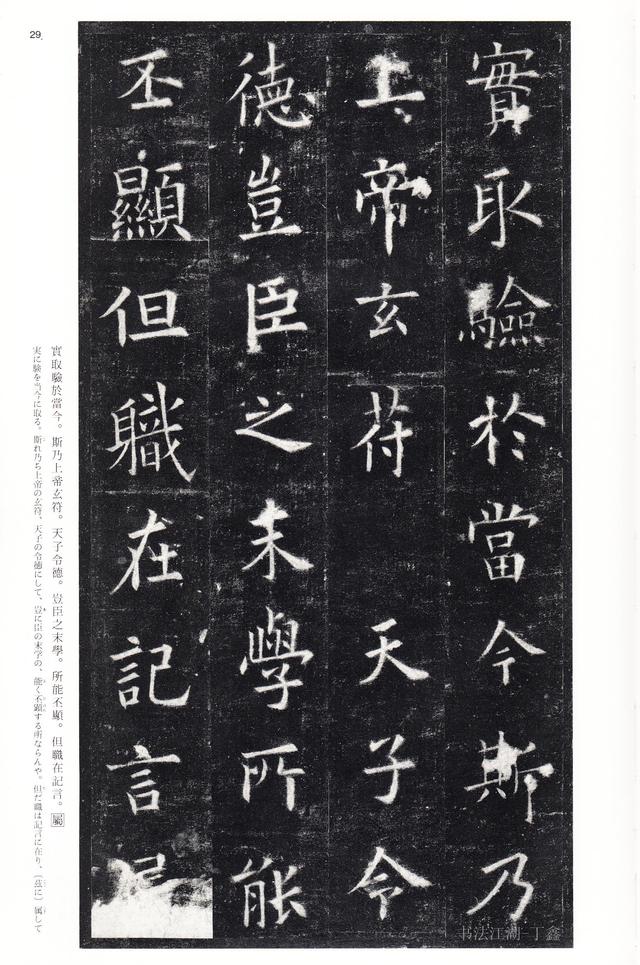 實取驗於當今斯乃
上帝玄苻 天子令
德豈臣之末學所能
丕顯但職在記言
實取驗於當今。斯乃上帝玄符。天子令德。豈臣之末學。所能丕顯。但職在記言。屬
実に験を当今に取る。斯れ乃ち上帝の玄符、天子の令徳にして、豈に臣の末学の、能く丕顕する所ならんや。但だ職は記言に在り、（茲に）属して
29
书法江湖-丁鑫